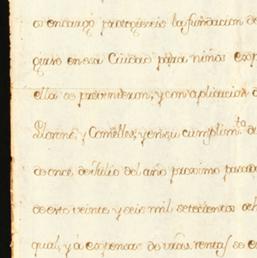 encargó protegieseis la fundacion de
en esa Ciudad para niños exp
ella se previnieron, y con aplicacion d
Llorens y Comelles, y en su cumplim.to d
de once de Julio del año proximo pasado
de esto veinte y seis mil setecientos och
qual, y á expensas de vras rentas se e